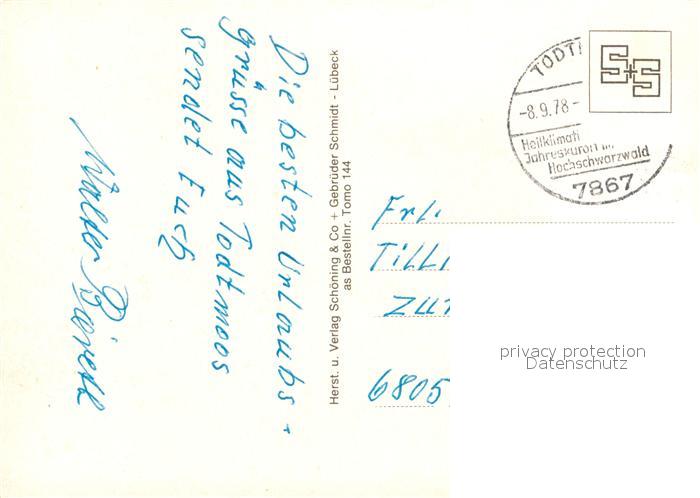 Die besten Urlaubs-
grüsse aus Todtmoos
sendet Euch
Walter
Herst. u. Verlag Schöning & Co + Gebrüder Schmidt - Lübeck
as Bestellnr. Tomo 144
S+S
TODT
-8.9.78-
Heilklimati
Jahreskurort im
Hochschwarzwald
7867
Frl.
Tilli
zur
6805
privacy protection
Datenschutz